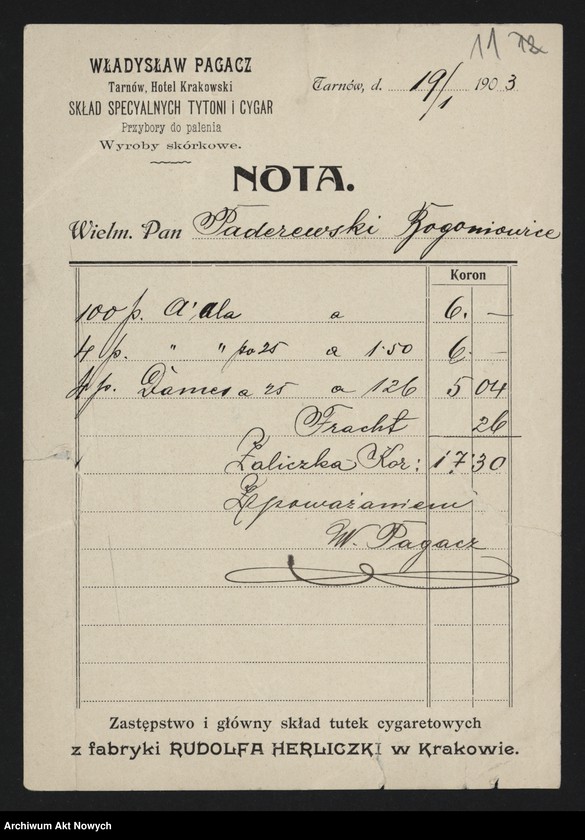 11
WŁADYSŁAW PAGACZ
Tarnów, Hotel Krakowski
SKŁAD SPECYALNYCH TYTONI i CYGAR
Przybory do palenia
Wyroby skórkowe.
Tarnów, d. 19/1 1903
NOTA.
Wielm. Pan Paderewski Rogoniowice
Koron
100 p. A' ala a 6. —
4 p. " " po 25 a 1·50 6 —
4 p. Dames a 25 a 126 5 04
Fracht 26
Zaliczka Kor: 17·30
Z poważaniem
W. Pagacz
Zastępstwo i główny skład tutek cygaretowych
z fabryki RUDOLFA HERLICZKI w Krakowie.
Archiwum Akt Nowych